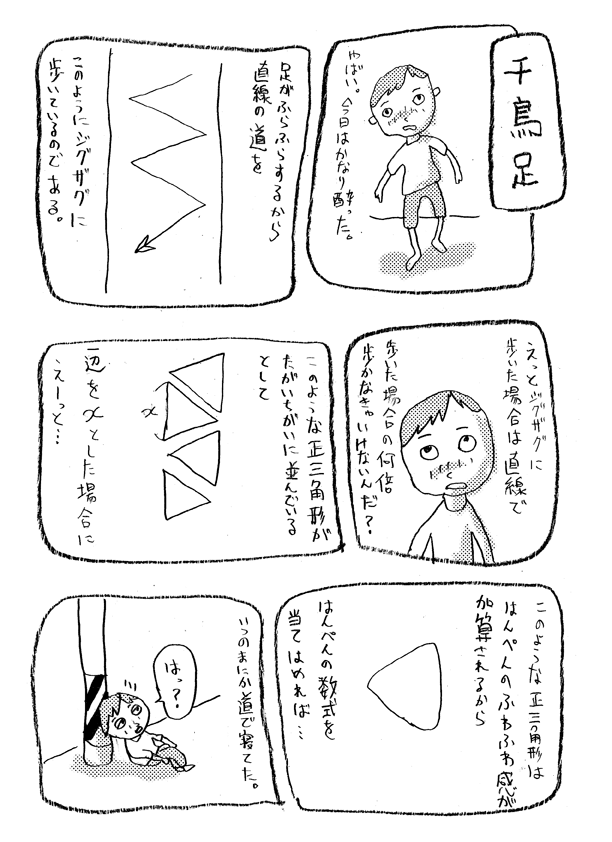 千鳥足
やばい。今日はかなり酔った。
足がふらふらするから
直線の道を
このようにジグザグに
歩いているのである。
えっとジグザグに
歩いた場合は直線で
歩いた場合の何倍
歩かなきゃいけないんだ?
このような正三角形が
たがいちがいに並んでいる
として
x
一辺をxとした場合に
えーっと…
このような正三角形は
はんぺんのふわふわ感が
加算されるから
はんぺんの数式を
当てはめれば…
はっ?
いつのまにか道で寝てた。